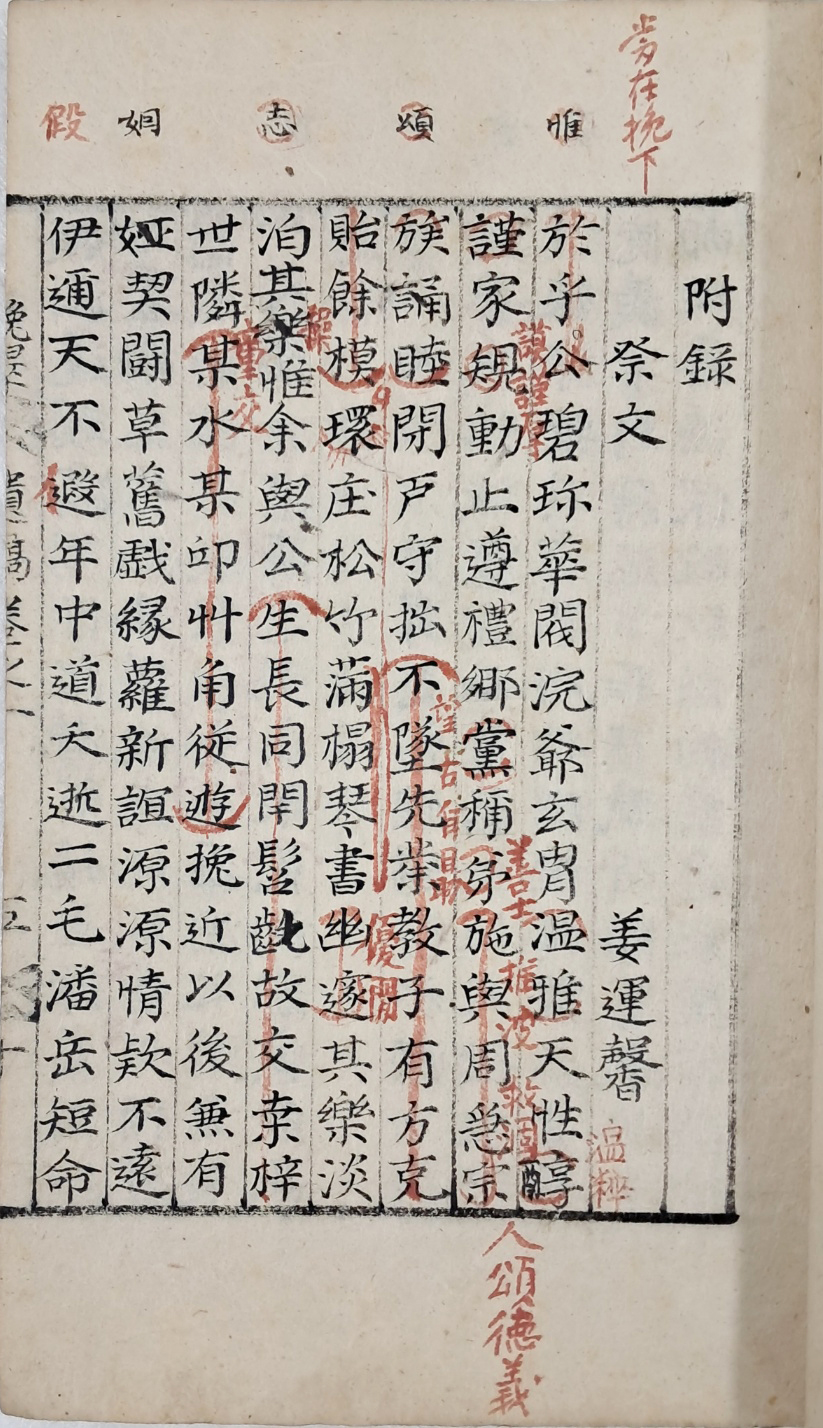 當在挽下
惟
頌
志
姻
假
附錄
祭文
姜運馨
於乎公碧珎華閥浣爺玄冑温雅天性醇
謹家規動止遵禮鄉黨稱弟施與周急宗
族誦睦閉戶守拙不墜先業教子有方克
貽餘模環庄松竹滿榻琴書幽邃其樂淡
泊其樂惟余與公生長同閈髫齔故交桒梓
世隣某水某卬艸角從遊挽近以後無有
婭契鬪草舊戱緣蘿新誼源源情欵不遠
伊邇天不遐年中道夭逝二毛潘岳短命
温粹
謹
善士
推波
救涸
人頌德義
望古自
優閒
遺稿卷之一